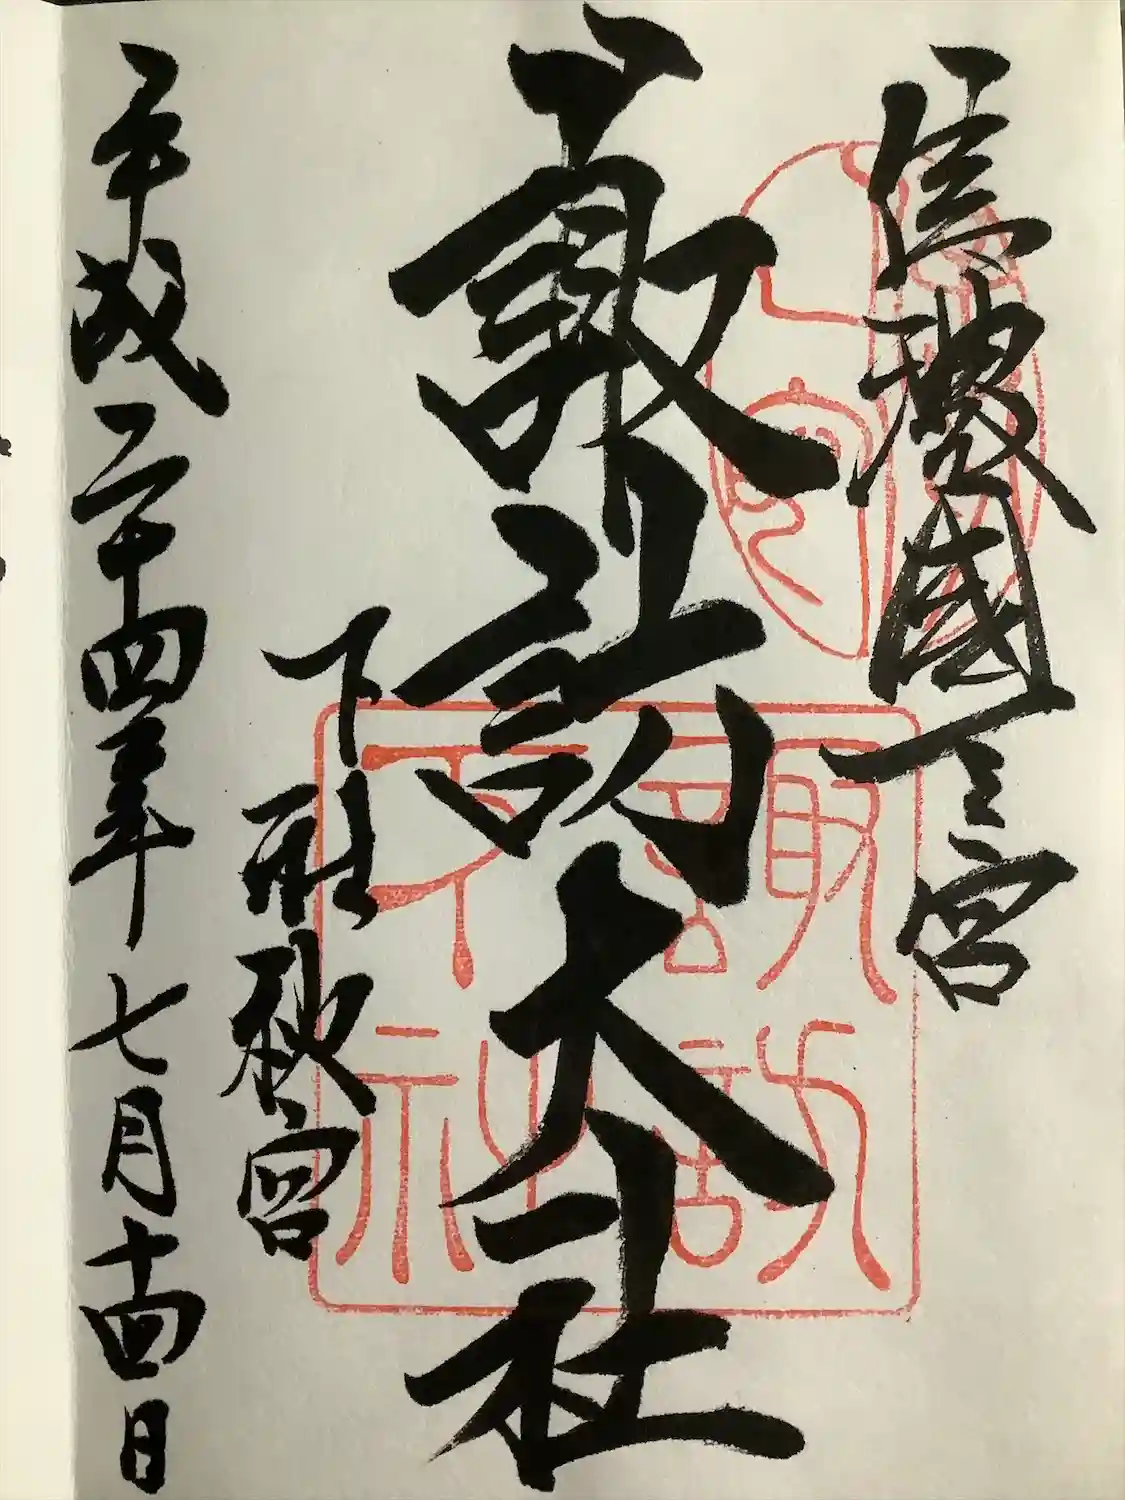 信濃國一之宮
諏訪大社
下社秋宮
平成二十四年七月十四日
諏訪下社